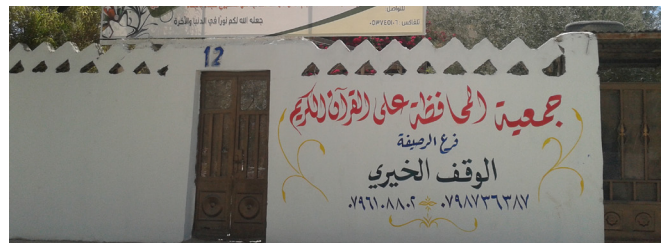 جعله الله لكم نورا في الدنيا والآخرة
12
جمعية المحافظة على القرآن الكريم
فرع الرصيفة
الوقف الخيري
٠٧٩٦١٠٨٨٠٢ - ٠٧٩٨٧٣٦٣٨٧